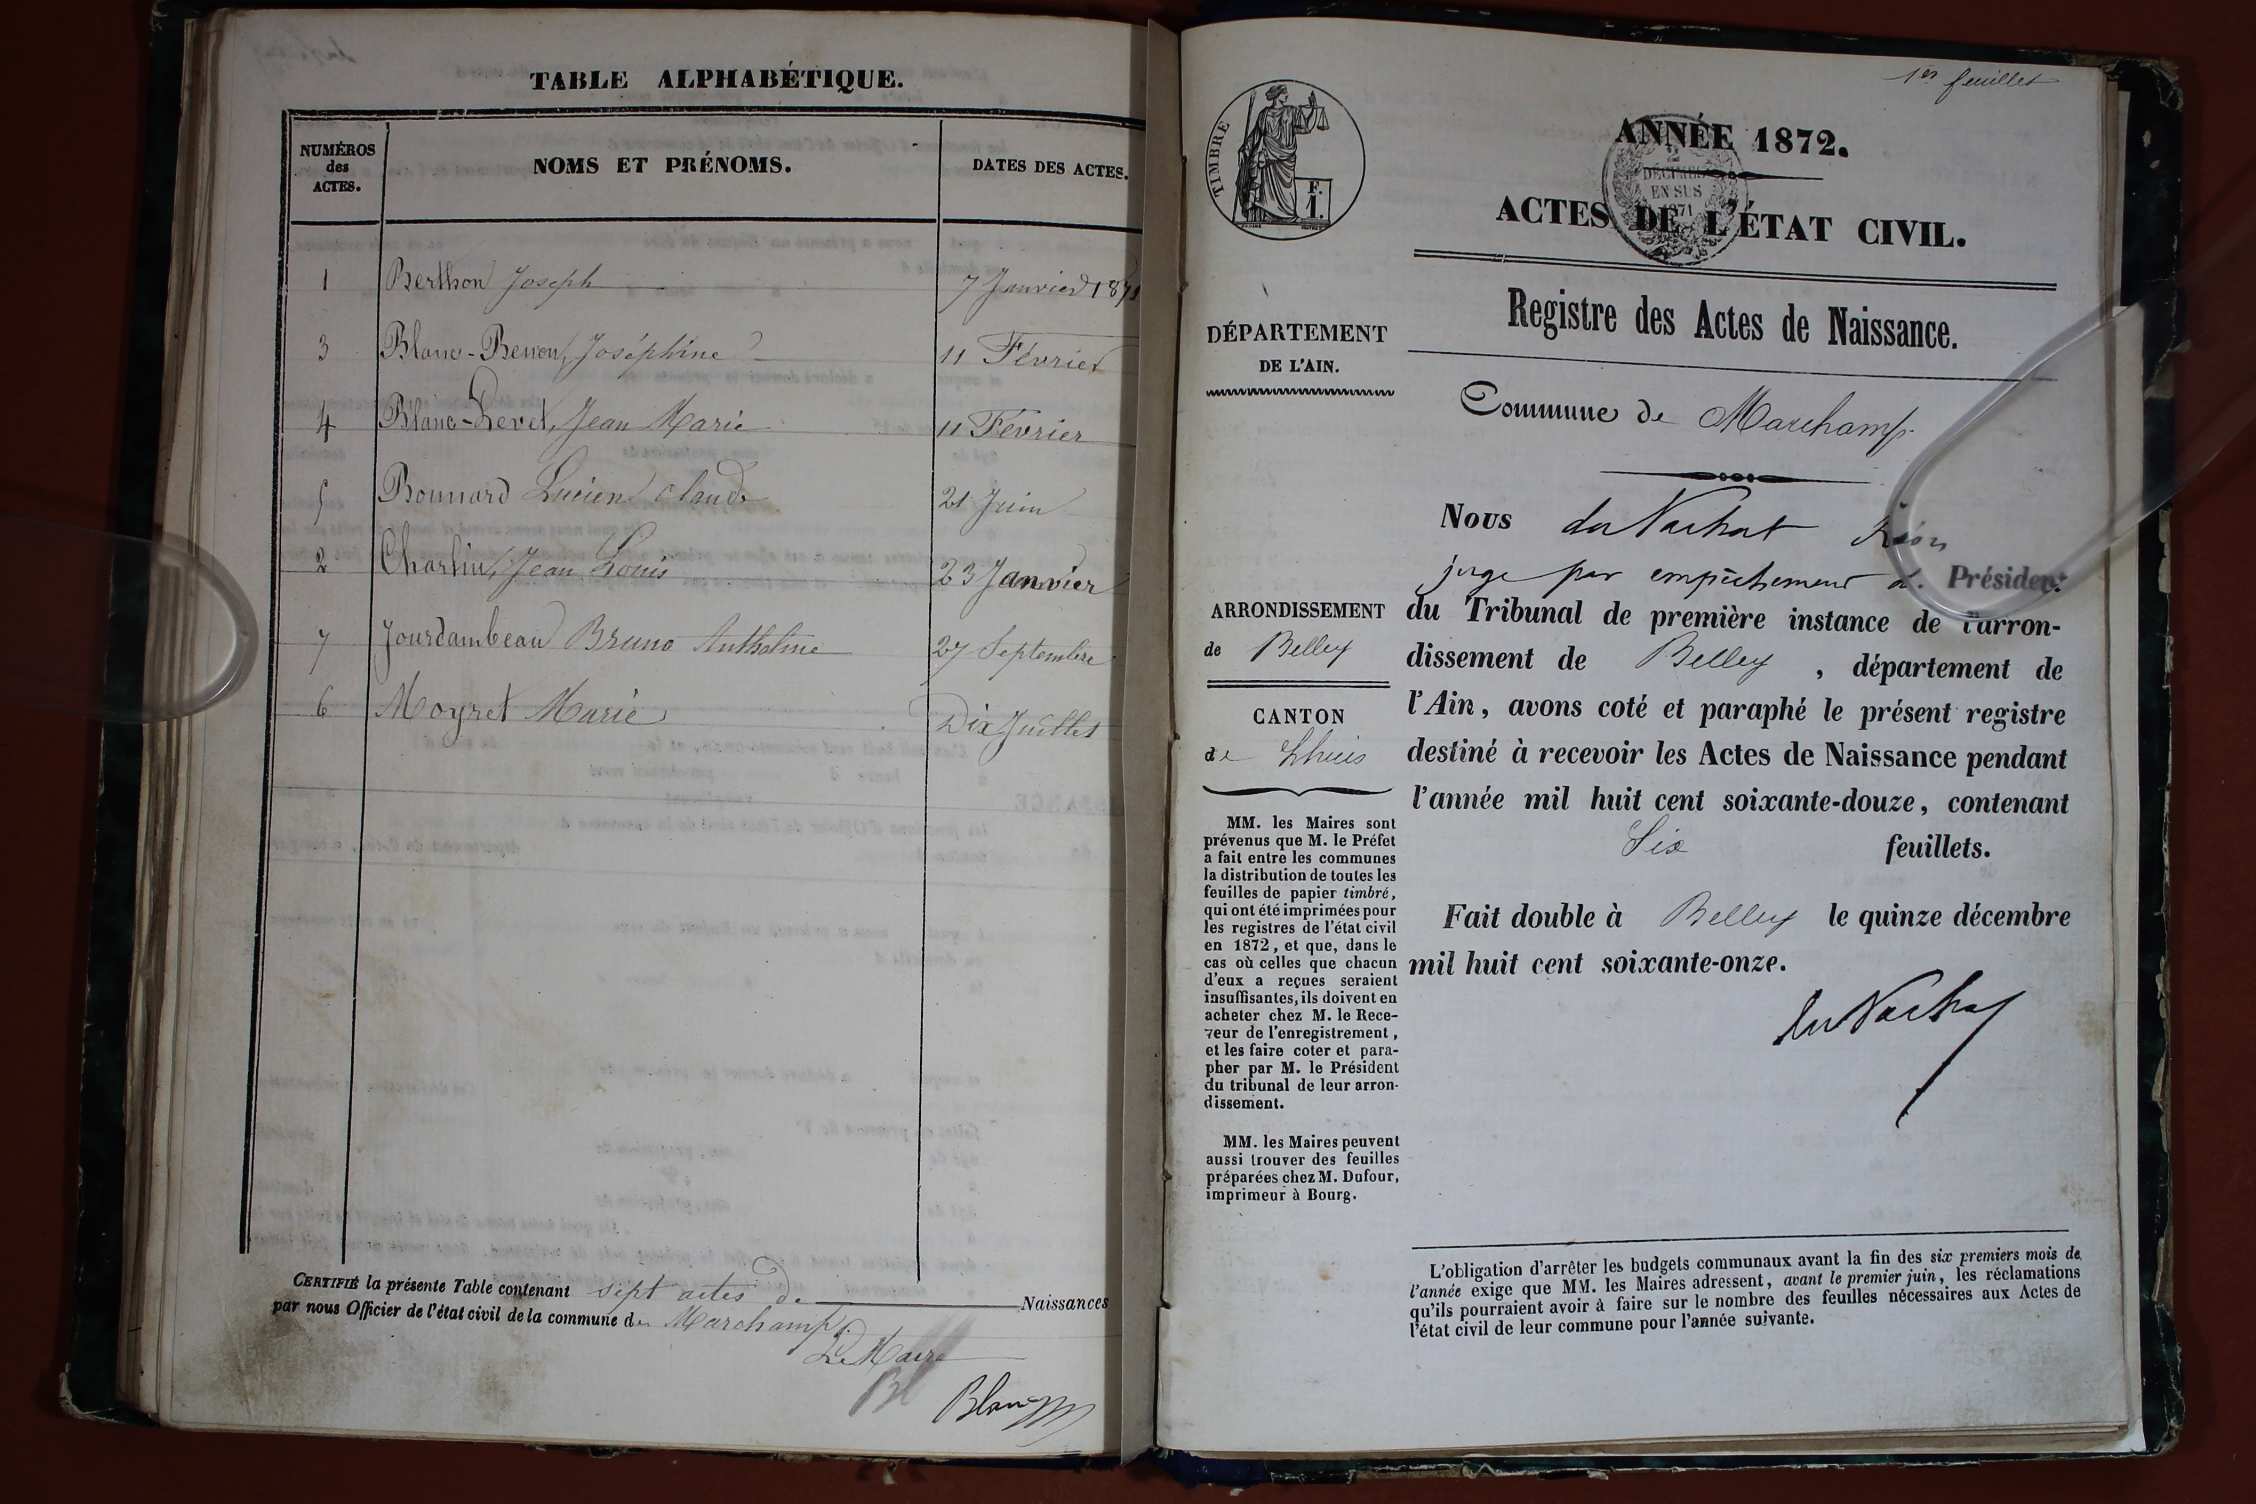 TABLE ALPHABÉTIQUE.
NUMÉROS des ACTES. NOMS ET PRÉNOMS. DATES DES ACTES.
1 Berthon Joseph 7 Janvier 1871
3 Blanc-Benon, Joséphine 11 Février
4 Blanc-Levet, Jean Marie 11 Février
5 Bonnard Lucien Claude 21 Juin
2 Charlin, Jean Louis 23 Janvier
7 Jourdambeau Bruno Anthelme 27 Septembre
6 Moyret Marie Dix Juillet
CERTIFIÉ la présente Table contenant sept actes de Naissances
par nous Officier de l'état civil de la commune de Marchamp.
Le Maire
Bl
Blanc
1er feuillet
TIMBRE
F.
1.
ANNÉE 1872.
2 DÉCIMES
EN SUS
1871
ACTES DE L'ÉTAT CIVIL.
DÉPARTEMENT
DE L'AIN.
ARRONDISSEMENT
de Belley
CANTON
de Lhuis
MM. les Maires sont
prévenus que M. le Préfet
a fait entre les communes
la distribution de toutes les
feuilles de papier timbré,
qui ont été imprimées pour
les registres de l'état civil
en 1872, et que, dans le
cas où celles que chacun
d'eux a reçues seraient
insuffisantes, ils doivent en
acheter chez M. le Rece-
veur de l'enregistrement,
et les faire coter et para-
pher par M. le Président
du tribunal de leur arron-
dissement.
MM. les Maires peuvent
aussi trouver des feuilles
préparées chez M. Dufour,
imprimeur à Bourg.
Registre des Actes de Naissance.
Commune de Marchamp
Nous du Nachat Léon
juge par empêchement d. Président
du Tribunal de première instance de l'arron-
dissement de Belley, département de
l'Ain, avons coté et paraphé le présent registre
destiné à recevoir les Actes de Naissance pendant
l'année mil huit cent soixante-douze, contenant
Six feuillets.
Fait double à Belley le quinze décembre
mil huit cent soixante-onze.
du Nachat
L'obligation d'arrêter les budgets communaux avant la fin des six premiers mois de
l'année exige que MM. les Maires adressent, avant le premier juin, les réclamations
qu'ils pourraient avoir à faire sur le nombre des feuilles nécessaires aux Actes de
l'état civil de leur commune pour l'année suivante.